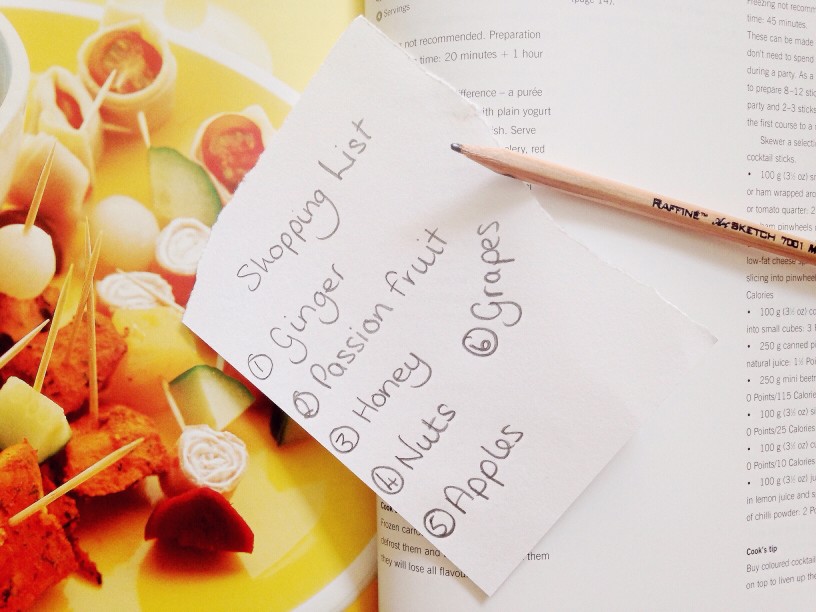 Servings
(page 14).
not recommended. Preparation
time: 20 minutes + 1 hour
fference – a purée
with plain yogurt
sh. Serve
elery, red
Shopping List
① Ginger
② Passion fruit
③ Honey
④ Nuts
⑤ Apples
⑥ Grapes
RAFFINE™ SKETCH 7001
Cook's
Frozen
defrost them and
them
they will lose all flavou
Freezing not recomm
time: 45 minutes.
These can be made
don't need to spend
during a party. As a
to prepare 8–12 stic
party and 2–3 sticks
the first course to a
Skewer a selecti
cocktail sticks.
• 100 g (3½ oz) s
or ham wrapped aro
or tomato quarter: 2
ham pinwheels
low-fat cheese
slicing into pinwheel
Calories
• 100 g (3½ oz) co
into small cubes: 3
• 250 g canned p
natural juice: 1½ Poi
• 250 g mini beetr
0 Points/115 Calorie
• 100 g (3½ oz) s
0 Points/25 Calories
• 100 g (3½ oz) cu
0 Points/10 Calories
• 100 g (3½ oz) ju
in lemon juice and s
of chilli powder: 2 Po
Cook's tip
Buy coloured cocktail
on top to liven up the